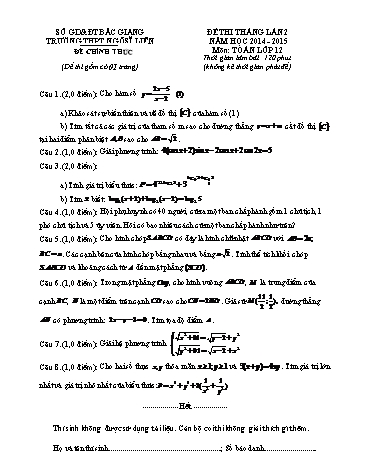 SỞ GD&ĐT BẮC GIANG
TRƯỜNG THPT NGÔ SĨ LIÊN
ĐỀ CHÍNH THỨC
(Đề thi gồm có 01 trang)
ĐỀ THI THÁNG LẦN 2
NĂM HỌC 2014 - 2015
Môn: TOÁN LỚP 12
Thời gian làm bài: 120 phút
(không kể thời gian phát đề)
Câu 1. (2,0 điểm): Cho hàm số (1)
a) Khảo sát sự biến thiên và vẽ đồ thị (C) của hàm số (1)
b) Tìm tất cả các giá trị của tham số m sao cho đường thẳng cắt đồ thị (C)
tại hai điểm phân biệt A,B sao cho
Câu 2. (1,0 điểm): Giải phương trình:
Câu 3. (2,0 điểm):
a) Tính giá trị biểu thức:
b) Tìm x biết:
Câu 4. (1,0 điểm): Hội phụ huynh có 40 người, cử ra một ban chấp hành gồm 1 chủ tịch, 1
phó chủ tịch và 5 ủy viên. Hỏi có bao nhiêu cách cử một ban chấp hành như trên?
Câu 5. (1,0 điểm): Cho hình chóp S.ABCD có đáy là hình chữ nhật ABCD với AB = 2a,
BC = a. Các cạnh bên của hình chóp bằng nhau và bằng a√2. Tính thể tích khối chóp
S.ABCD và khoảng cách từ A đến mặt phẳng (SCD).
Câu 6. (1,0 điểm): Trong mặt phẳng Oxy, cho hình vuông ABCD, M là trung điểm của
cạnh BC, N là một điểm trên cạnh CD sao cho CN = 2ND. Giả sử M(11/2; 1/2), đường thẳng
AN có phương trình: 2x − y − 3 = 0. Tìm tọa độ điểm A.
Câu 7. (1,0 điểm): Giải hệ phương trình
Câu 8. (1,0 điểm): Cho hai số thực x, y thỏa mãn x ≥ 1; y ≥ 1 và 3(x+y) = 4xy. Tìm giá trị lớn
nhất và giá trị nhỏ nhất của biểu thức
Hết
Thí sinh không được sử dụng tài liệu. Cán bộ coi thi không giải thích gì thêm.
Họ và tên thí sinh: ; Số báo danh